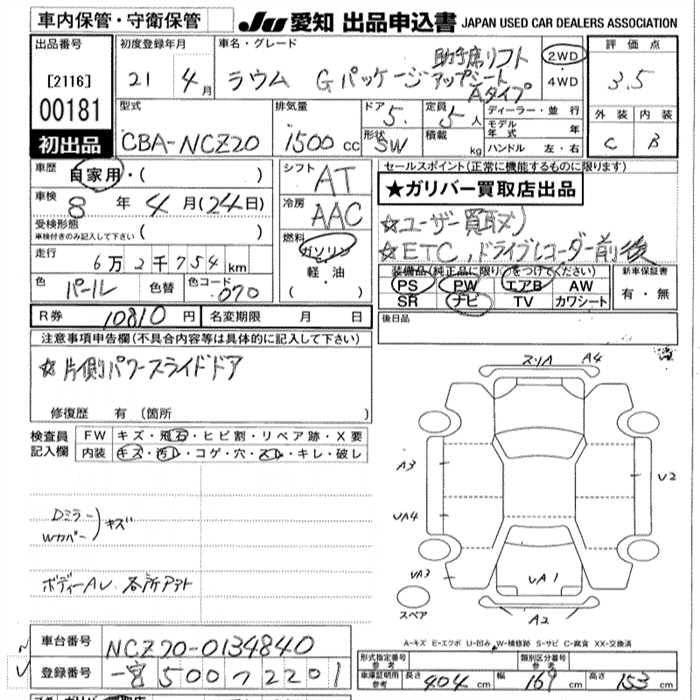 車内保管・守衛保管 JU 愛知 出品申込書 JAPAN USED CAR DEALERS ASSOCIATION
出品番号 初度登録年月 車名・グレード 2WD 評価点
[2116] 21 4月 ラウム Gパッケージ 助手席リフトアップシート Aタイプ 4WD 3.5
00181 型式 排気量 ドア 定員 ディーラー・並行 外装 内装
初出品 CBA-NCZ20 1500cc 5 5人 モデル年式 年 C B
形状 SW 積載 kg ハンドル 左・右
車歴 自家用・( ) シフト AT セールスポイント(正常に機能するものに限ります)
車検 8年4月(24日) 冷房 AAC ★ガリバー買取店出品
受検形態 車検付きのみ記入して下さい ( ) 燃料 ☆ユーザー買取〆)
走行 6万2千754km ガソリン ☆ETC,ドライブレコーダー前後
色 パール 色替 色コード 070 軽油 ( ・ )
装備品(純正品に限り○をつけてください) 新車保証書
PS PW エアB AW 有・無
SR ナビ TV カワシート
R券 10810円 名変期限 月 日 後日品
注意事項申告欄(不具合内容等は具体的に記入して下さい)
☆片側パワースライドドア
修復歴 有 (箇所 )
検査員記入欄 FW キズ・飛石・ヒビ割・リペア跡・X要
内装 キズ・汚レ・コゲ・穴・スレ・キレ・破レ
Dミラー
Wカバー )キズ
ボディーAU 各所アウト
スリA A4
A3 U2
UA4
UA3 UA1
スペア A2
A-キズ E-エクボ U-凹み W-補修跡 S-サビ C-腐食 XX-交換済
車台番号 NCZ20-0134840
登録番号 一宮500つ2201
形式指定番号 参考 類別区分番号 参考
車庫証明用 参考 長さ 404cm 幅 169cm 高さ 153cm